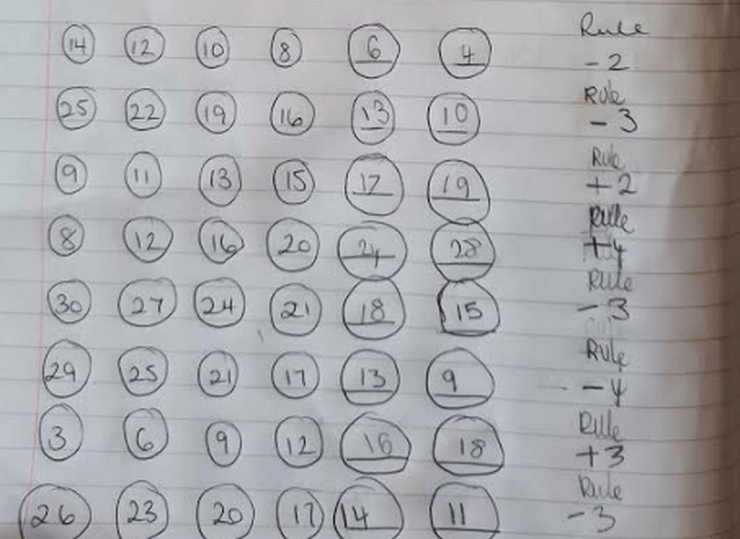 14 12 10 8 6 4 Rule -2
25 22 19 16 13 10 Rule -3
9 11 13 15 17 19 Rule +2
8 12 16 20 24 28 Rule +4
30 27 24 21 18 15 Rule -3
29 25 21 17 13 9 Rule -4
3 6 9 12 16 18 Rule +3
26 23 20 17 14 11 Rule -3